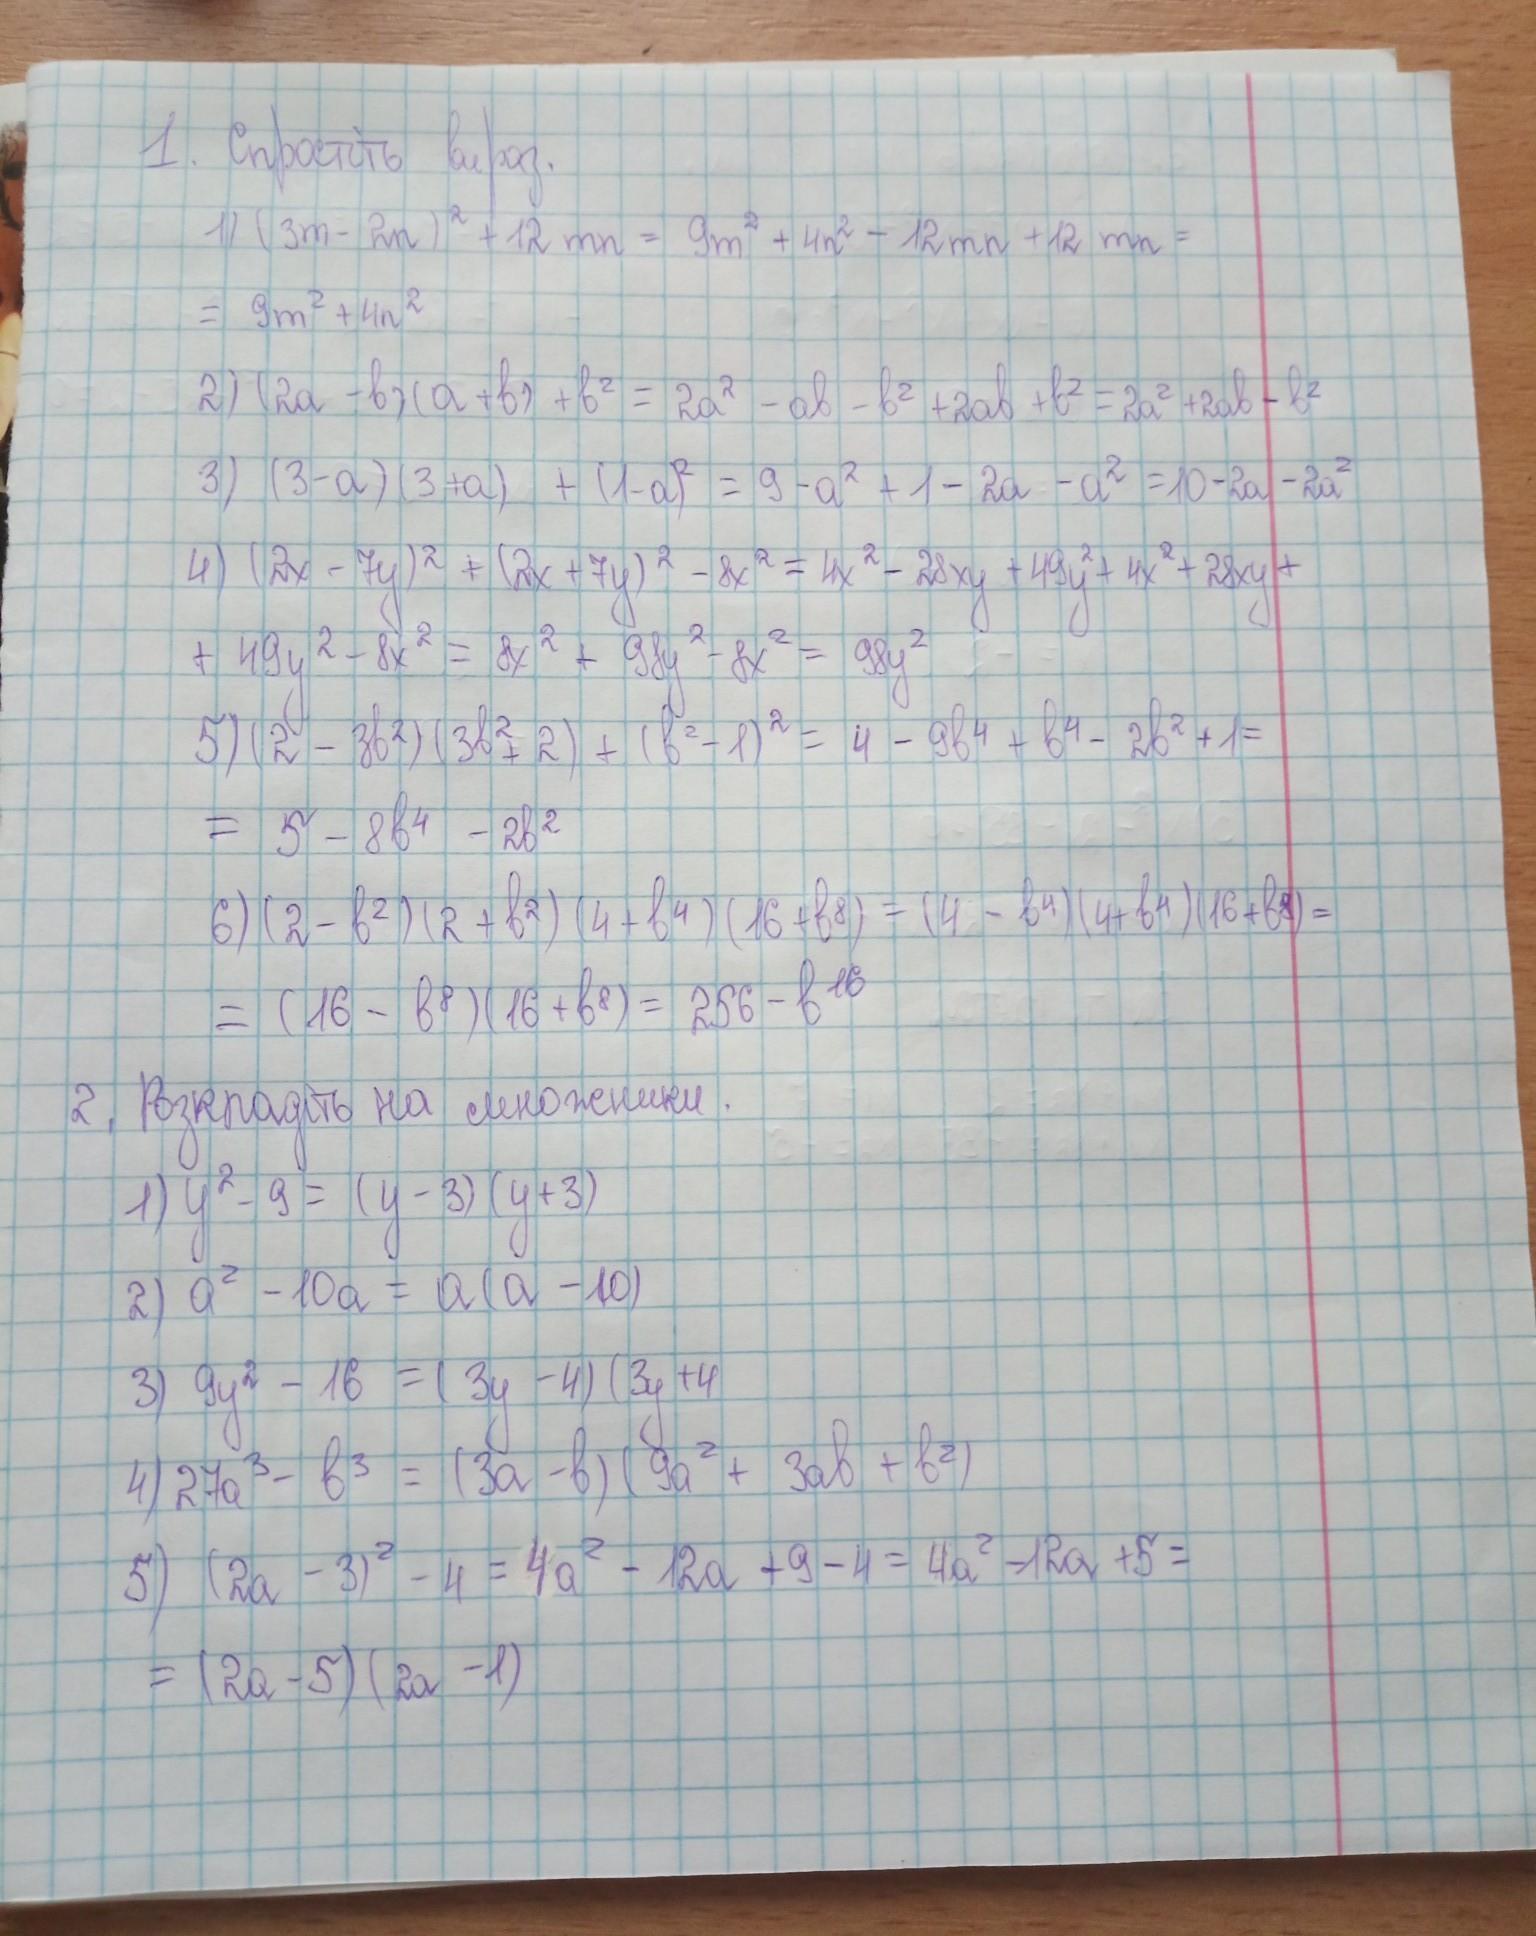 1. Спростіть вираз.
1) (3m - 2n)² + 12 mn = 9m² + 4n² - 12mn + 12 mn =
= 9m² + 4n²
2) (2a - b)(a + b) + b² = 2a² - ab - b² + 2ab + b² = 2a² + 2ab - b²
3) (3 - a)(3 + a) + (1 - a)² = 9 - a² + 1 - 2a - a² = 10 - 2a - 2a²
4) (2x - 7y)² + (2x + 7y)² - 8x² = 4x² - 28xy + 49y² + 4x² + 28xy +
+ 49y² - 8x² = 8x² + 98y² - 8x² = 98y²
5) (2 - 3b²)(3b² + 2) + (b² - 1)² = 4 - 9b⁴ + b⁴ - 2b² + 1 =
= 5 - 8b⁴ - 2b²
6) (2 - b²)(2 + b²)(4 + b⁴)(16 + b⁸) = (4 - b⁴)(4 + b⁴)(16 + b⁸) =
= (16 - b⁸)(16 + b⁸) = 256 - b¹⁶
2. Розкладіть на множники.
1) y² - 9 = (y - 3)(y + 3)
2) a² - 10a = a(a - 10)
3) 9y² - 16 = (3y - 4)(3y + 4
4) 27a³ - b³ = (3a - b)(9a² + 3ab + b²)
5) (2a - 3)² - 4 = 4a² - 12a + 9 - 4 = 4a² - 12a + 5 =
= (2a - 5)(2a - 1)